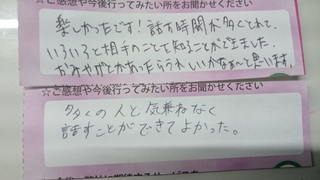 ☆ご感想や今後行ってみたい所をお聞かせください
楽しかったです！話す時間が多くとれて、
いろいろと相手のことを知ることができました。
おみやげとかあったらうれしいかなぁ〜と思います。
☆ご感想や今後行ってみたい所をお聞かせください
多くの人と気兼ねなく
話すことができてよかった。